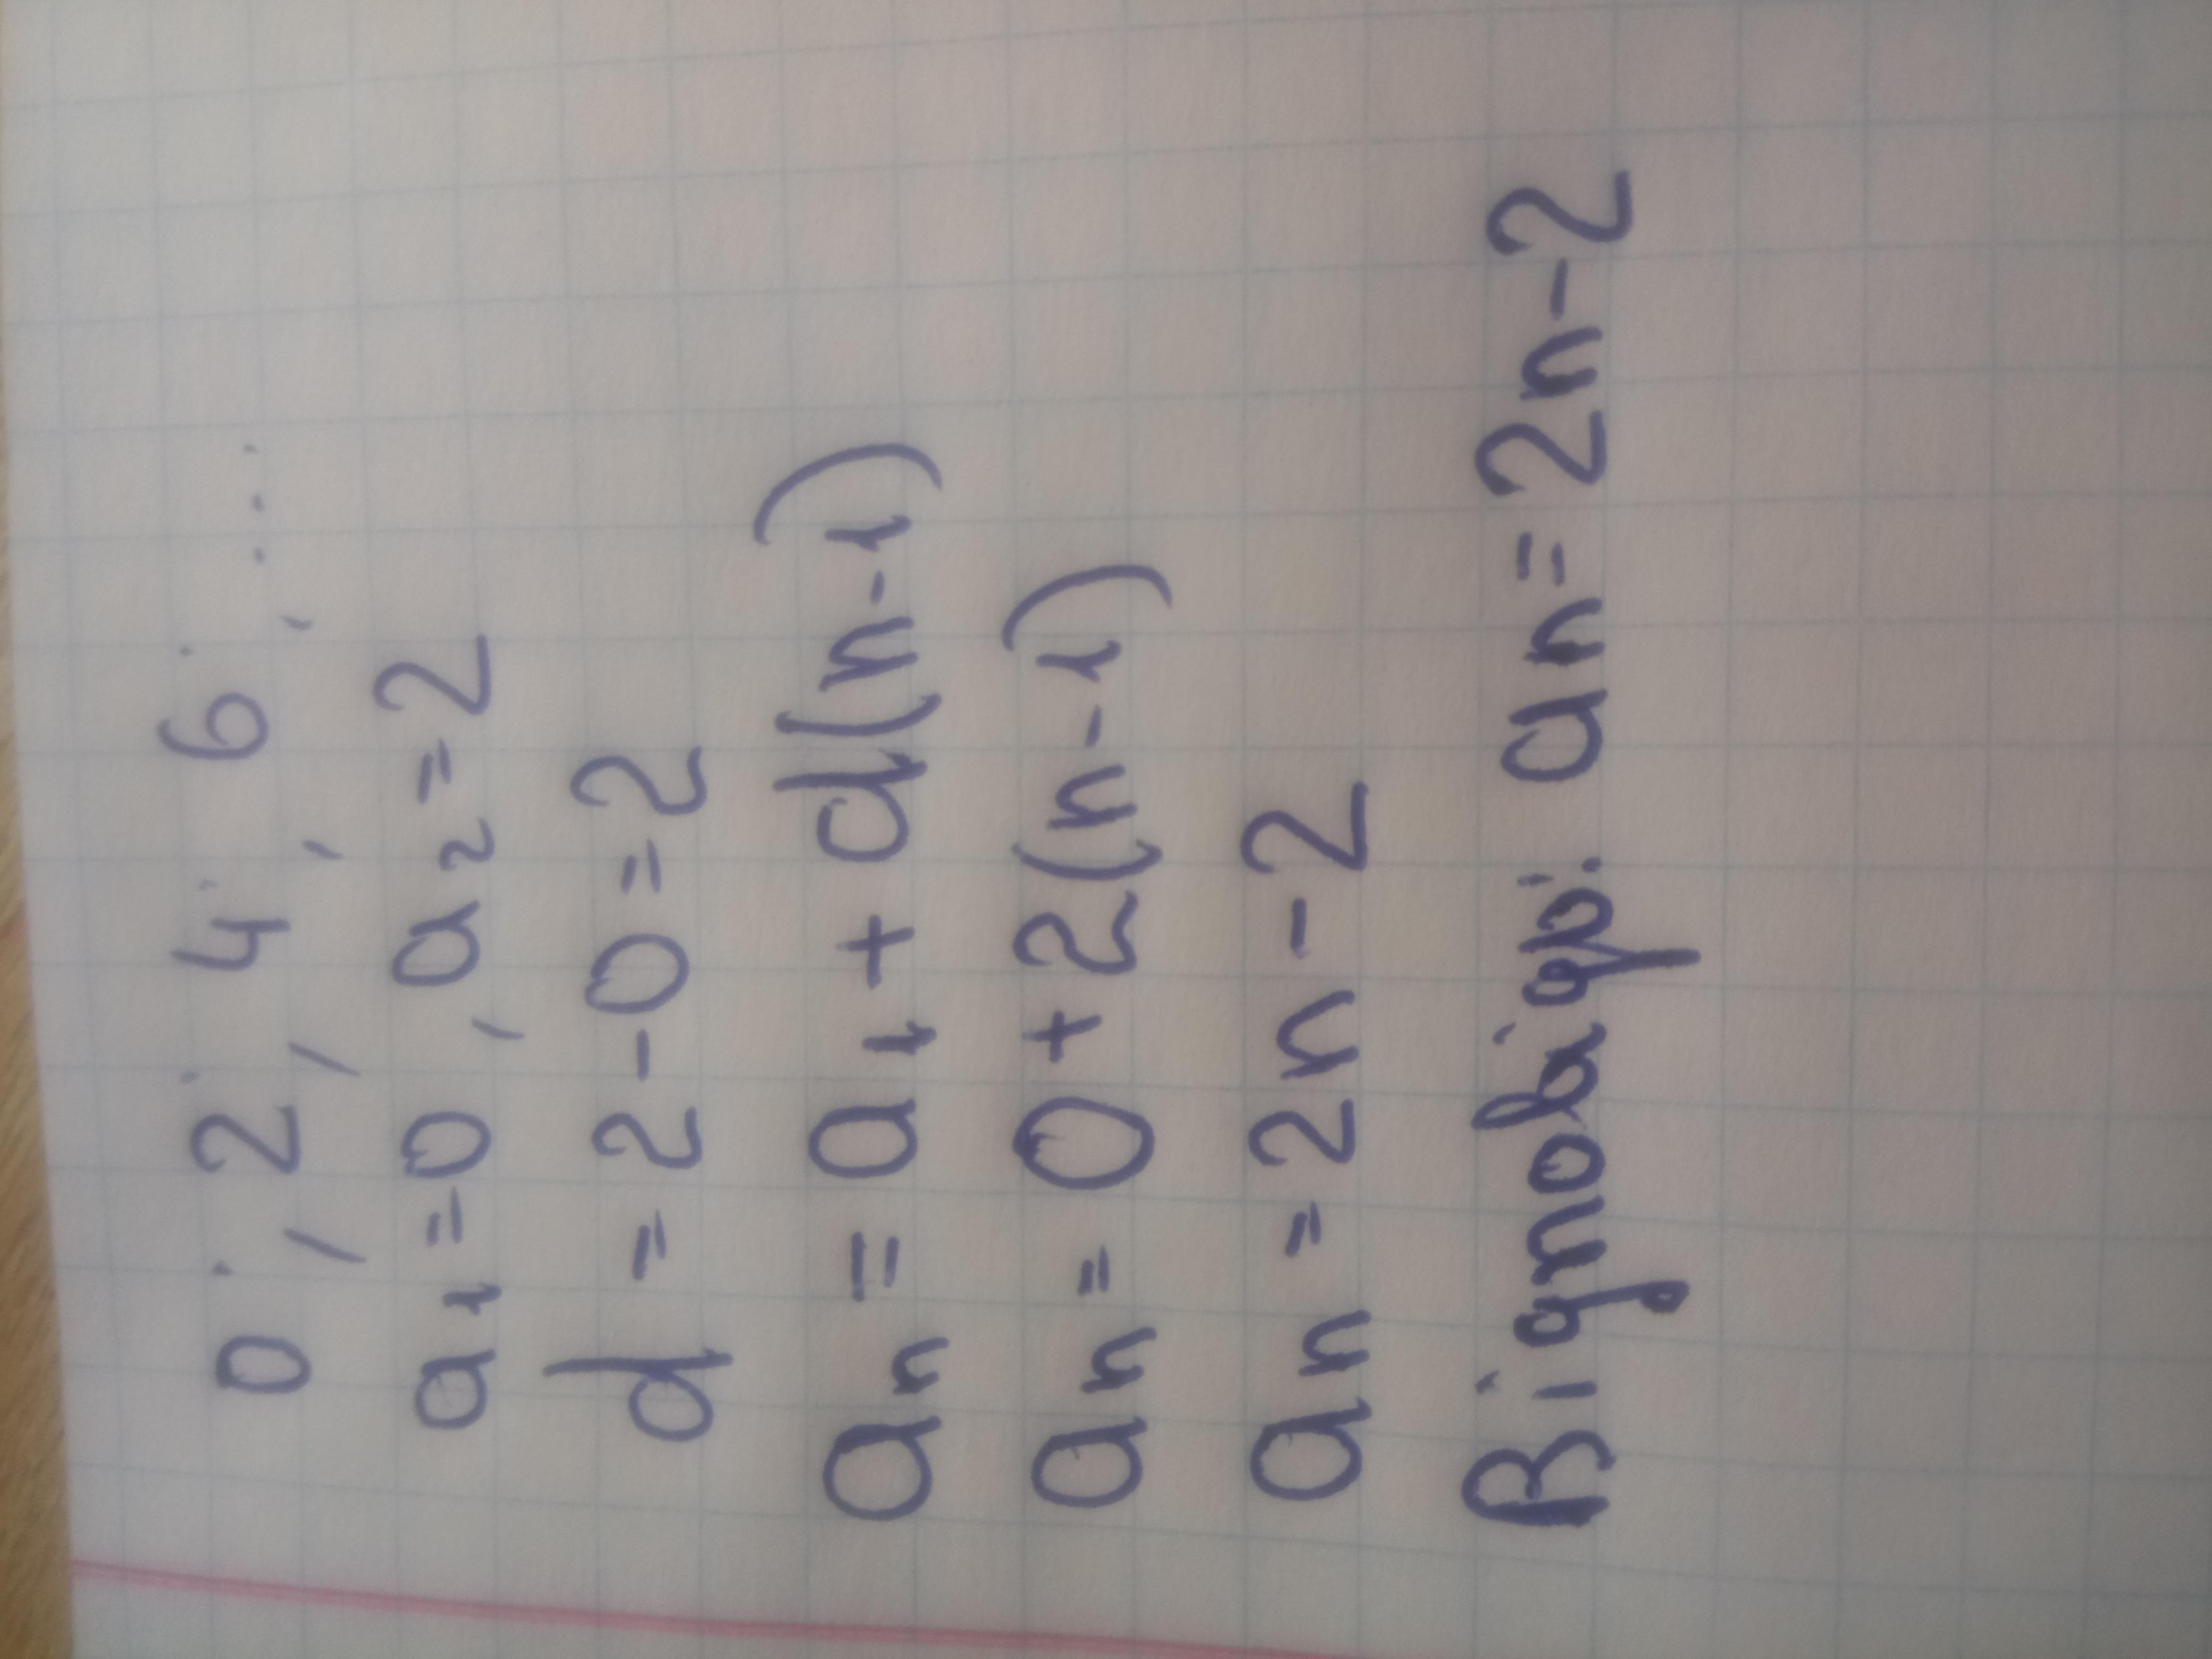 0, 2, 4, 6, ...
a₁ = 0, a₂ = 2
d = 2 - 0 = 2
aₙ = a₁ + d(n-1)
aₙ = 0 + 2(n-1)
aₙ = 2n - 2
Відповідь: an = 2n - 2